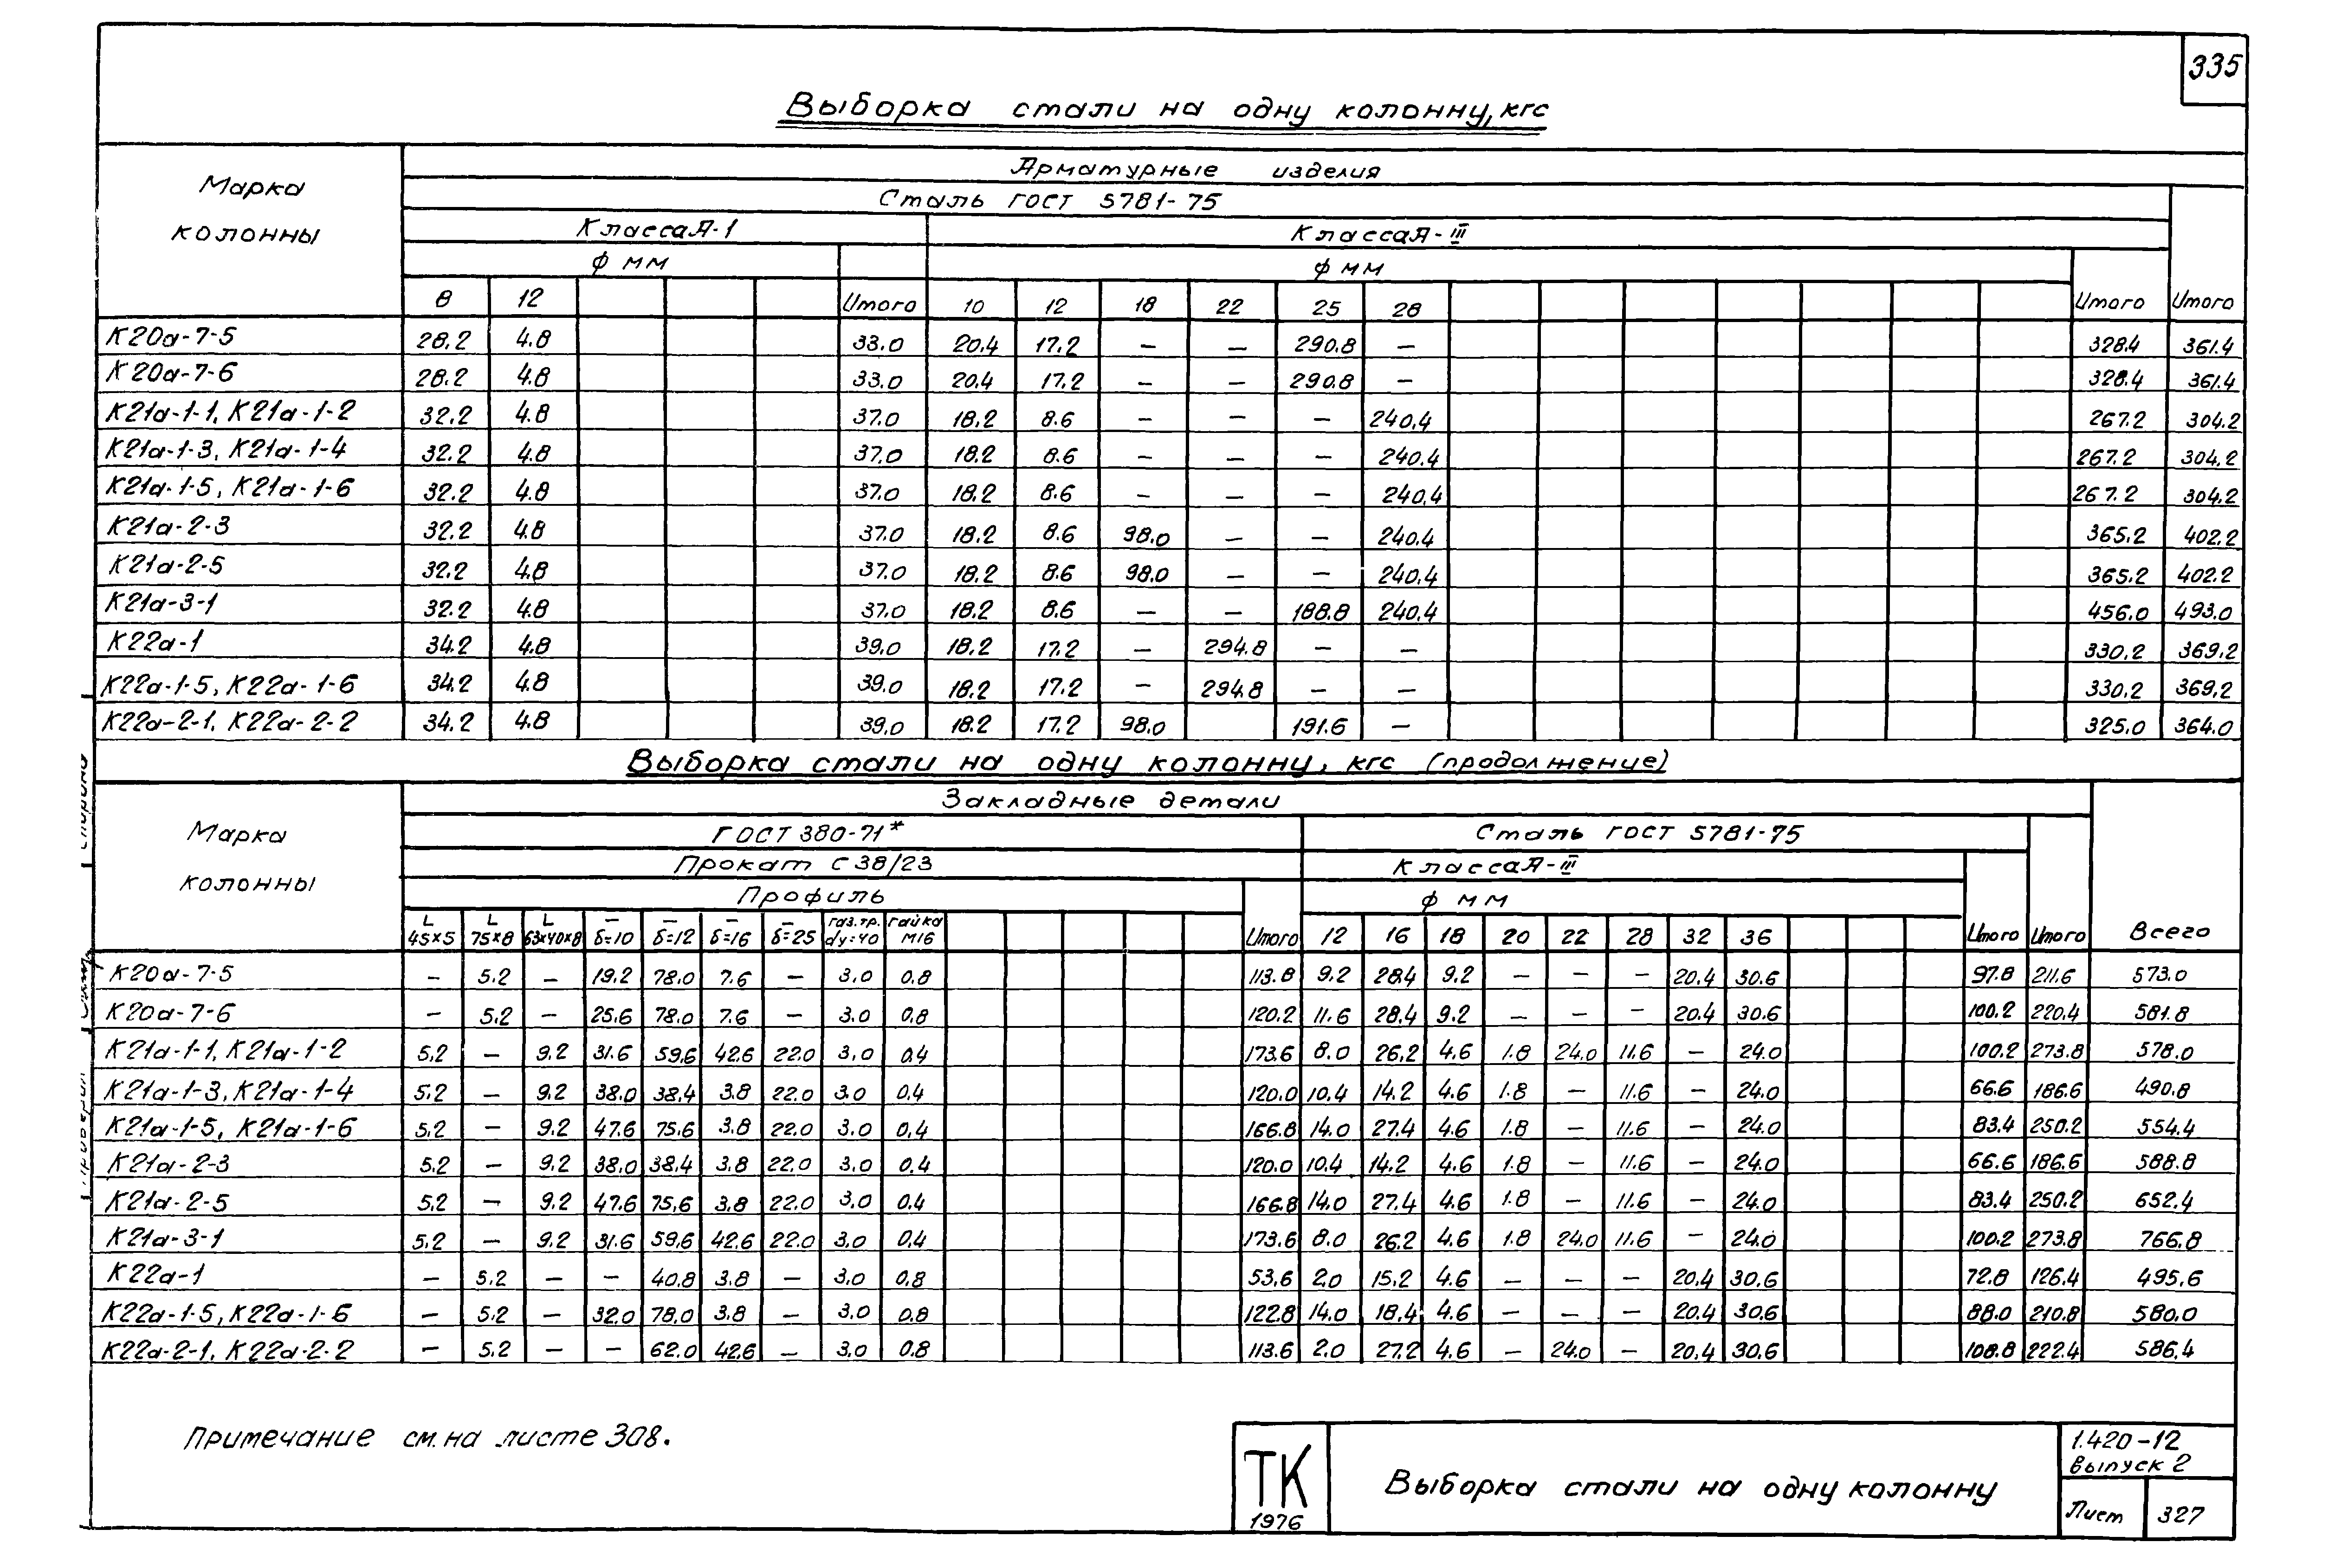 335
Выборка стали на одну колонну, кгс
Марка колонны
Арматурные изделия
Сталь ГОСТ 5781-75
Класса А-I Класса А-III
ф мм ф мм
8 12 Итого 10 12 18 22 25 28 Итого Итого
К20а-7-5 28.2 4.8 33.0 20.4 17.2 — — 290.8 — 328.4 361.4
К20а-7-6 28.2 4.8 33.0 20.4 17.2 — — 290.8 — 328.4 361.4
К21а-1-1, К21а-1-2 32.2 4.8 37.0 18.2 8.6 — — — 240.4 267.2 304.2
К21а-1-3, К21а-1-4 32.2 4.8 37.0 18.2 8.6 — — — 240.4 267.2 304.2
К21а-1-5, К21а-1-6 32.2 4.8 37.0 18.2 8.6 — — — 240.4 267.2 304.2
К21а-2-3 32.2 4.8 37.0 18.2 8.6 98.0 — — 240.4 365.2 402.2
К21а-2-5 32.2 4.8 37.0 18.2 8.6 98.0 — — 240.4 365.2 402.2
К21а-3-1 32.2 4.8 37.0 18.2 8.6 — — 188.8 240.4 456.0 493.0
К22а-1 34.2 4.8 39.0 18.2 17.2 — 294.8 — — 330.2 369.2
К22а-1-5, К22а-1-6 34.2 4.8 39.0 18.2 17.2 — 294.8 — — 330.2 369.2
К22а-2-1, К22а-2-2 34.2 4.8 39.0 18.2 17.2 98.0 191.6 — 325.0 364.0
Выборка стали на одну колонну, кгс (продолжение)
Марка колонны
Закладные детали
ГОСТ 380-71* Сталь ГОСТ 5781-75
Прокат С 38/23 Класса А-III
Профиль ф мм
L 45×5 L 75×8 L 63×40×8 – δ=10 – δ=12 – δ=16 – δ=25 газ.тр. dу=40 гайка М16 Итого 12 16 18 20 22 28 32 36 Итого Итого Всего
К20а-7-5 — 5.2 — 19.2 78.0 7.6 — 3.0 0.8 113.8 9.2 28.4 9.2 — — — 20.4 30.6 97.8 211.6 573.0
К20а-7-6 — 5.2 — 25.6 78.0 7.6 — 3.0 0.8 120.2 11.6 28.4 9.2 — — — 20.4 30.6 100.2 220.4 581.8
К21а-1-1, К21а-1-2 5.2 — 9.2 31.6 59.6 42.6 22.0 3.0 0.4 173.6 8.0 26.2 4.6 1.8 24.0 11.6 — 24.0 100.2 273.8 578.0
К21а-1-3, К21а-1-4 5.2 — 9.2 38.0 38.4 3.8 22.0 3.0 0.4 120.0 10.4 14.2 4.6 1.8 — 11.6 — 24.0 66.6 186.6 490.8
К21а-1-5, К21а-1-6 5.2 — 9.2 47.6 75.6 3.8 22.0 3.0 0.4 166.8 14.0 27.4 4.6 1.8 — 11.6 — 24.0 83.4 250.2 554.4
К21а-2-3 5.2 — 9.2 38.0 38.4 3.8 22.0 3.0 0.4 120.0 10.4 14.2 4.6 1.8 — 11.6 — 24.0 66.6 186.6 588.8
К21а-2-5 5.2 — 9.2 47.6 75.6 3.8 22.0 3.0 0.4 166.8 14.0 27.4 4.6 1.8 — 11.6 — 24.0 83.4 250.2 652.4
К21а-3-1 5.2 — 9.2 31.6 59.6 42.6 22.0 3.0 0.4 173.6 8.0 26.2 4.6 1.8 24.0 11.6 — 24.0 100.2 273.8 766.8
К22а-1 — 5.2 — — 40.8 3.8 — 3.0 0.8 53.6 2.0 15.2 4.6 — — — 20.4 30.6 72.8 126.4 495.6
К22а-1-5, К22а-1-6 — 5.2 — 32.0 78.0 3.8 — 3.0 0.8 122.8 14.0 18.4 4.6 — — — 20.4 30.6 88.0 210.8 580.0
К22а-2-1, К22а-2-2 — 5.2 — — 62.0 42.6 — 3.0 0.8 113.6 2.0 27.2 4.6 — 24.0 — 20.4 30.6 108.8 222.4 586.4
Примечание см. на листе 308.
ТК
1976
Выборка стали на одну колонну
1.420-12
выпуск 2
Лист 327